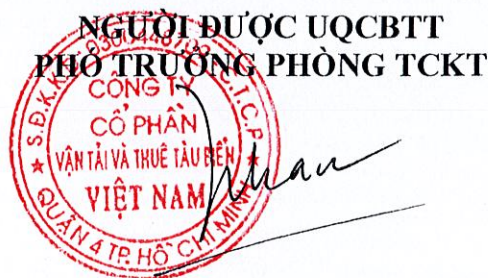 NGƯỜI ĐƯỢC UQCBTT
PHÓ TRƯỞNG PHÒNG TCKT
CÔNG TY
CỔ PHẦN
VẬN TẢI VÀ THUÊ TÀU BIỂN
VIỆT NAM
QUẬN 4 TP. HỒ CHÍ MINH